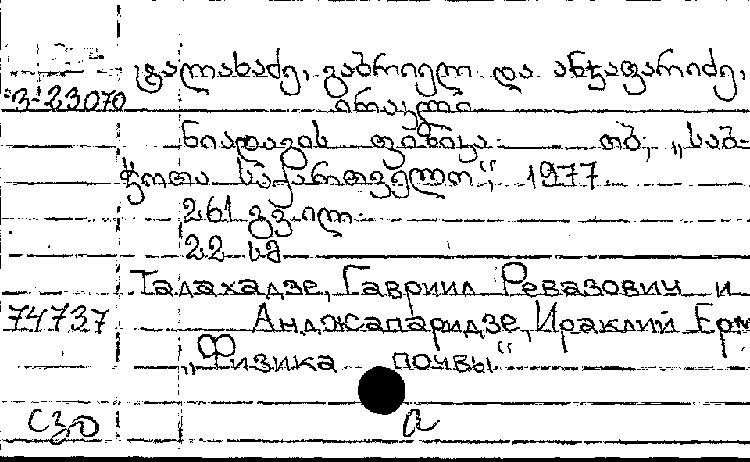 ტალახაძე, გაბრიელ და ანჯაფარიძე,
3-23070 ირაკლი
ნიადაგის ფიზიკა. თბ., „საბ-
ჭოთა საქართველო“, 1977.
261 გვ. ილ.
22 სმ
Талахадзе, Гавриил Ревазович и
74737 Анджапаридзе, Ираклий Ерм
„Физика почвы“
сзо а